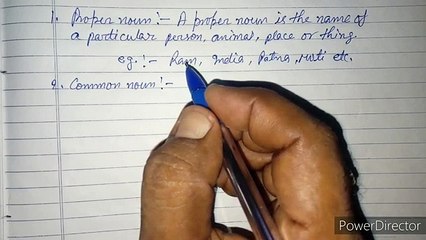 1. Proper noun:- A proper noun is the name of
a particular person, animal, place or thing.
eg.:- Ram, India, Patna, etc.
2. Common noun:-
PowerDirector